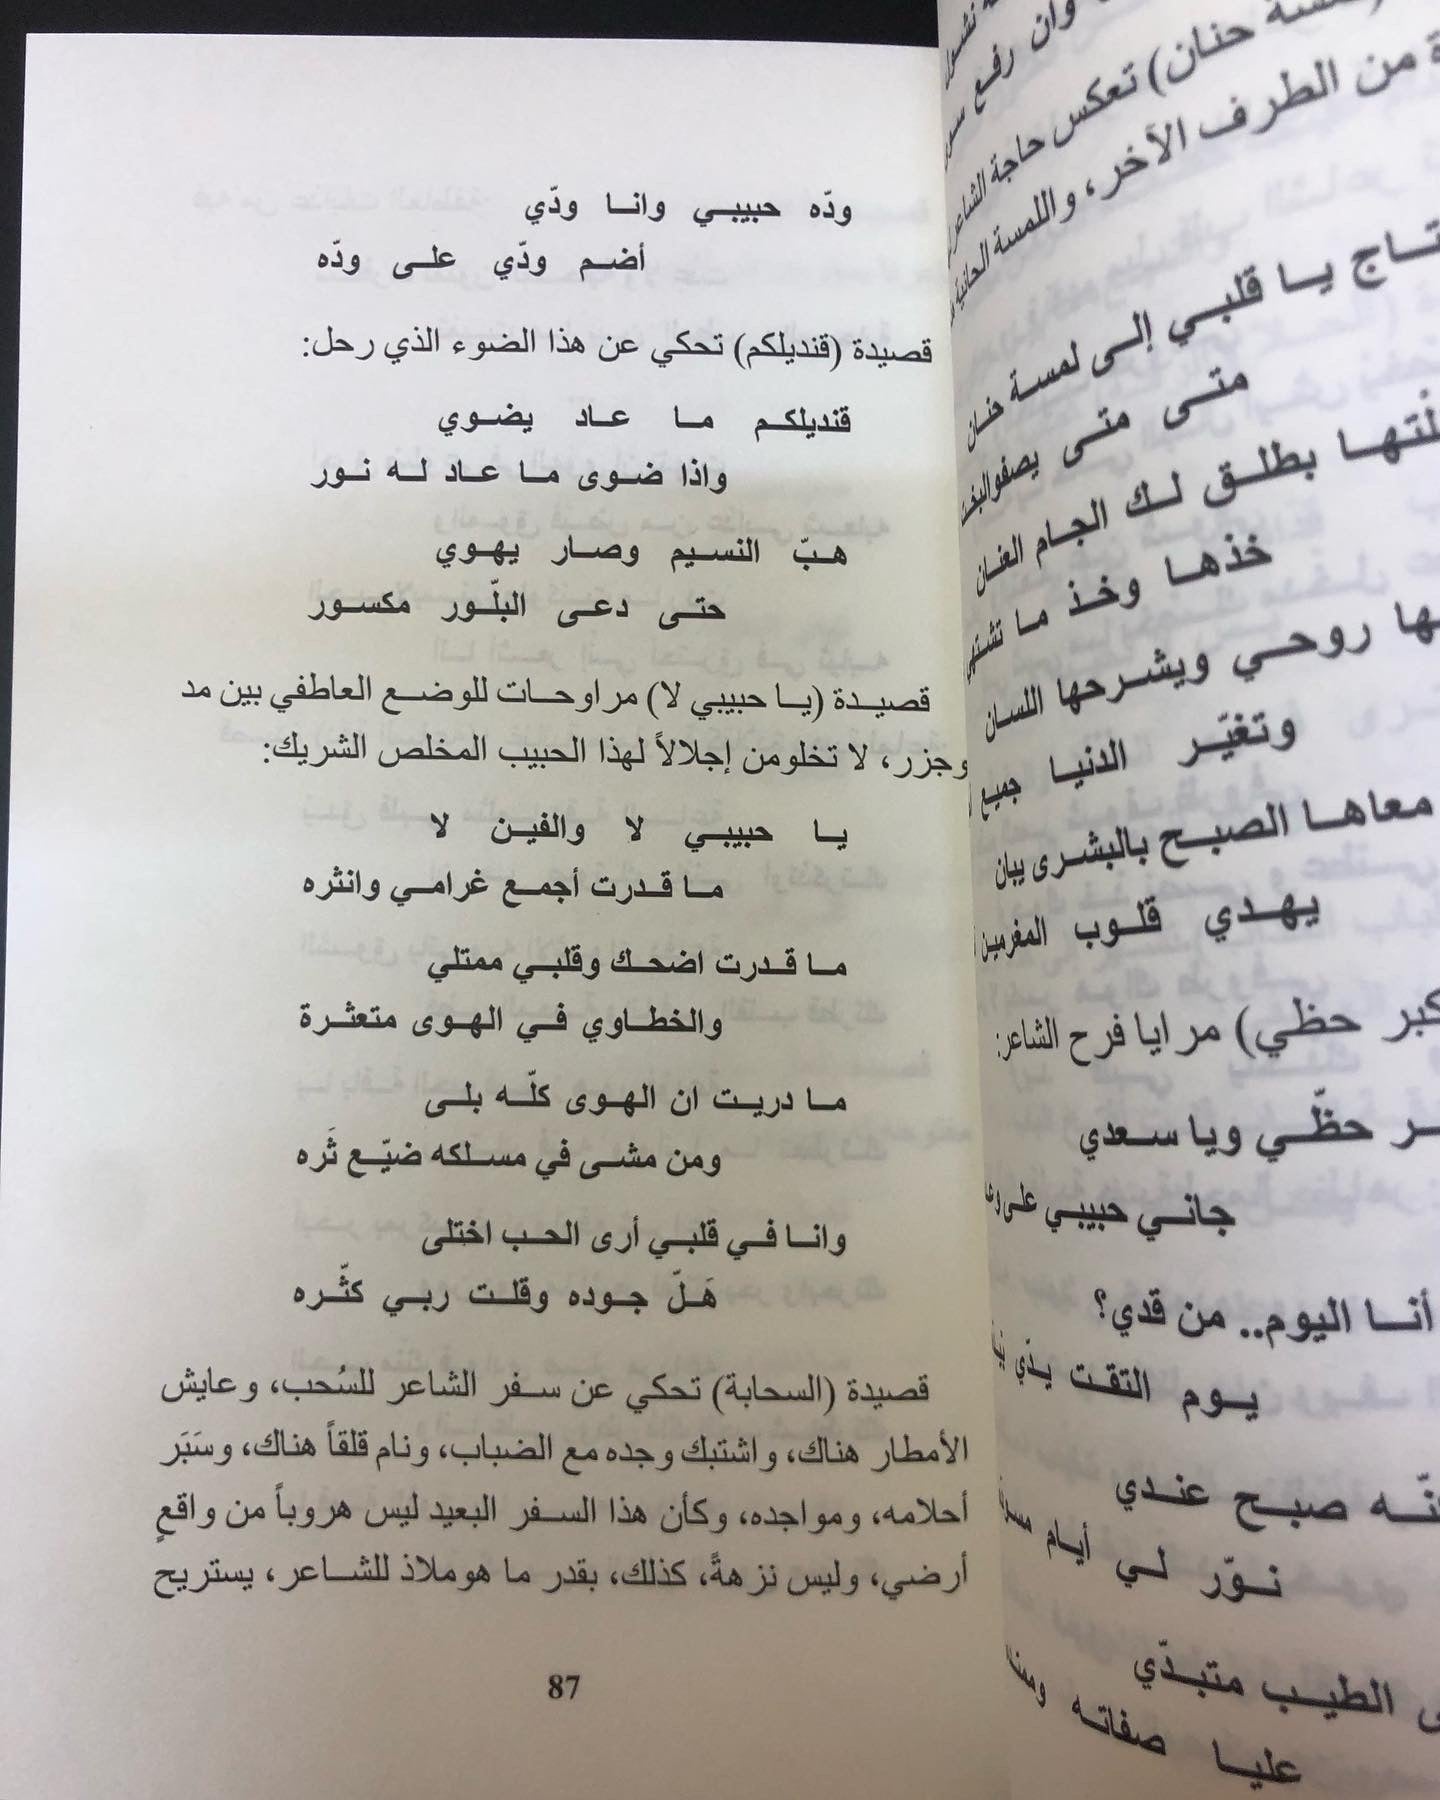 ودّه حبيبي وانا ودّي
أضم ودّي على ودّه
قصيدة (قنديلكم) تحكي عن هذا الضوء الذي رحل:
قنديلكم ما عاد يضوي
واذا ضوى ما عاد له نور
هبّ النسيم وصار يهوي
حتى دعى البلّور مكسور
قصيدة (يا حبيبي لا) مراوحات للوضع العاطفي بين مد
وجزر، لا تخلومن إجلالاً لهذا الحبيب المخلص الشريك:
يا حبيبي لا والفين لا
ما قدرت أجمع غرامي وانثره
ما قدرت اضحك وقلبي ممتلي
والخطاوي في الهوى متعثرة
ما دريت ان الهوى كلّه بلى
ومن مشى في مسلكه ضيّع ثَره
وانا في قلبي أرى الحب اختلى
هَلّ جوده وقلت ربي كثّره
قصيدة (السحابة) تحكي عن سفر الشاعر للسُحب، وعايش
الأمطار هناك، واشتبك وجده مع الضباب، ونام قلقاً هناك، وسَبَر
أحلامه، ومواجده، وكأن هذا السفر البعيد ليس هروباً من واقعٍ
أرضي، وليس نزهةً، كذلك، بقدر ما هوملاذ للشاعر، يستريح
87
وان رفع
حنان) تعكس حاجة
من الطرف الآخر، واللمسة الحانية
يا قلبي إلى لمسة حنان
متى متى يصفوالبخت
بطلق لك الجام العنان
خذها وخذ ما تشتهي
روحي ويشرحها اللسان
وتغيّر الدنيا جميع
معاها الصبح بالبشرى يبان
يهدي قلوب المغرمين
حظي) مرايا فرح الشاعر:
حظّي ويا سعدي
جاني حبيبي على
أنا اليوم.. من قدي؟
يوم التقت يدّي
صبح عندي
نوّر لي أيام
الطيب متبدّي
عليا صفاته